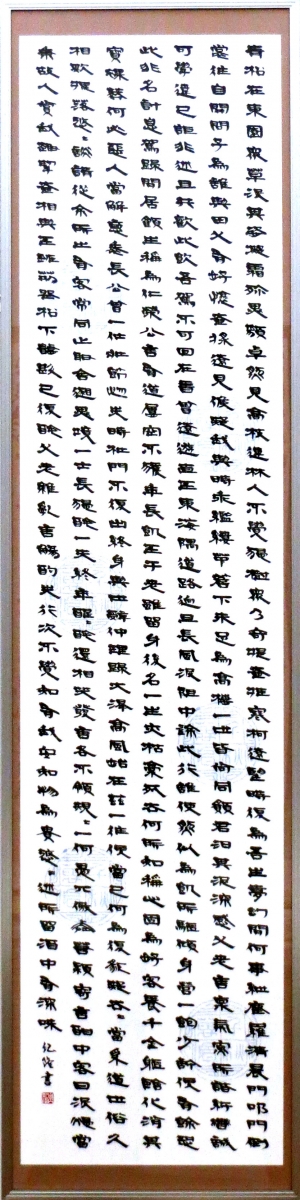 青松在東園衆草沒其姿凝霜殄異類卓然見高枝連林人不覺獨樹衆乃奇提壺挂寒柯遠望時復為吾生夢幻間何事紲塵羈清晨聞叩門倒
裳往自開問子為誰與田父有好懷壺漿遠見候疑我與時乖繿縷茅簷下未足為高栖一世皆尚同願君汩其泥深感父老言稟氣寡所諧紆轡誠
可學違己詎非迷且共歡此飲吾駕不可回在昔曾遠遊直至東海隅道路迥且長風波阻中塗此行誰使然似為飢所驅傾身營一飽少許便有餘恐
此非名計息駕歸閒居顏生稱為仁榮公言有道屢空不獲年長飢至于老雖留身後名一生亦枯槁死去何所知稱心固為好客養千金軀臨化消其
寶裸葬何必惡人當解意表長公曾一仕壯節忽失時杜門不復出終身與世辭仲理歸大澤高風始在茲一往便當已何為復狐疑去去當奚道世俗久
相欺擺落悠悠談請從余所之有客常同止取舍邈異境一士長獨醉一夫終年醒醒醉還相笑發言各不領規規一何愚兀傲差若穎寄言酣中客日沒燭當
秉故人賞我趣挈壺相與至班荊坐松下數斟已復醉父老雜亂言觴酌失行次不覺知有我安知物為貴悠悠迷所留酒中有深味
書